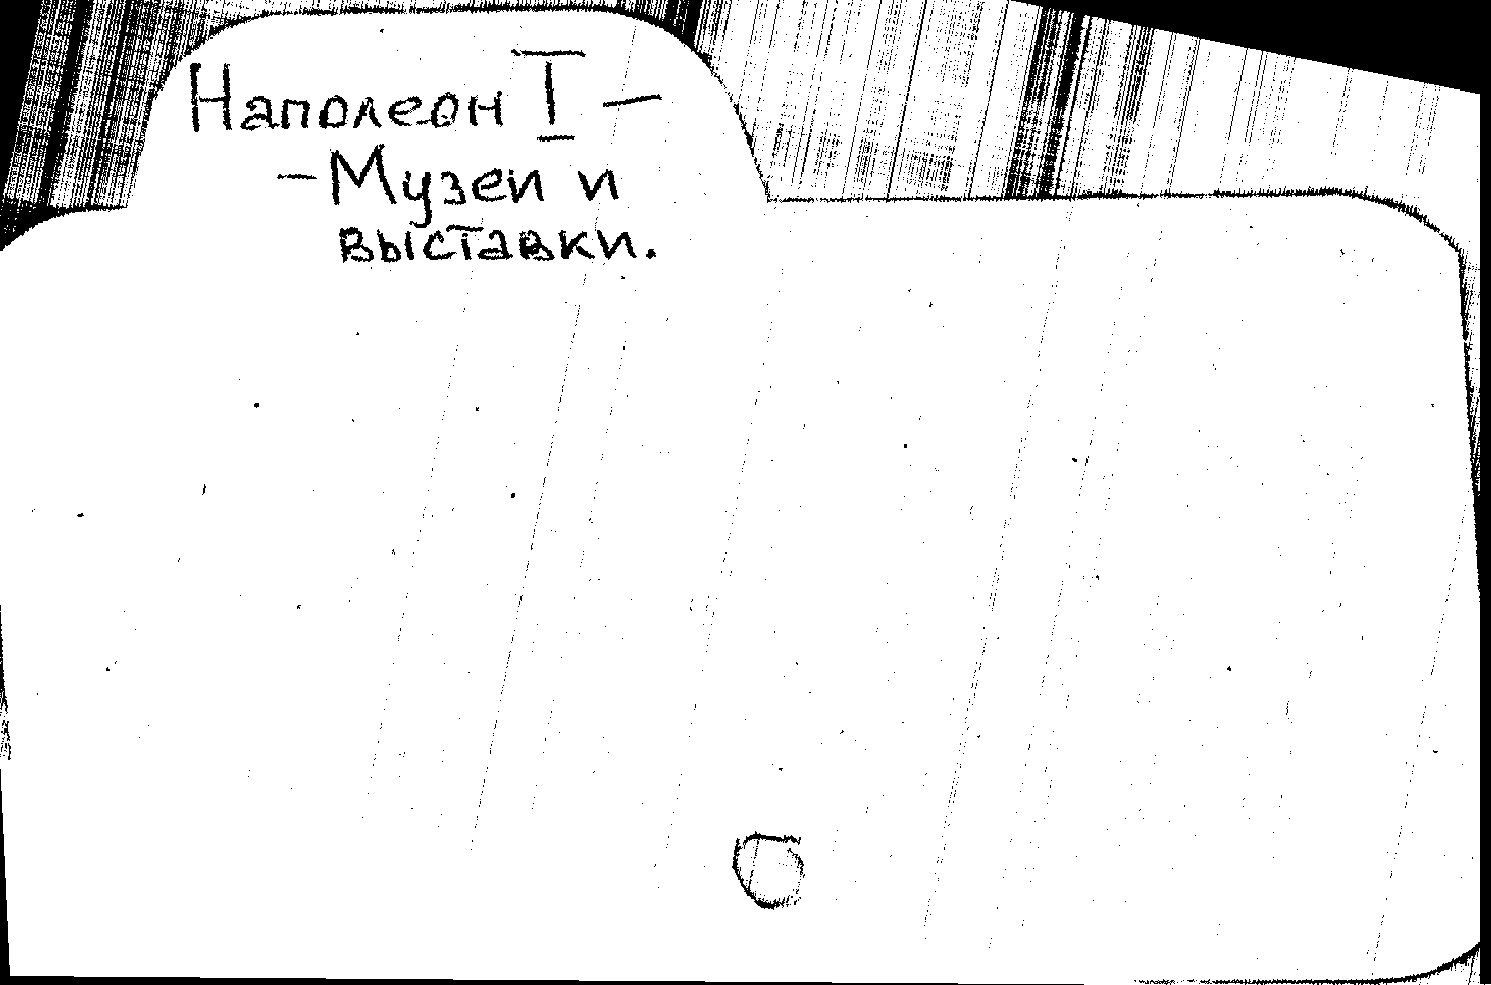 Наполеон I —
— Музеи и
выставки.